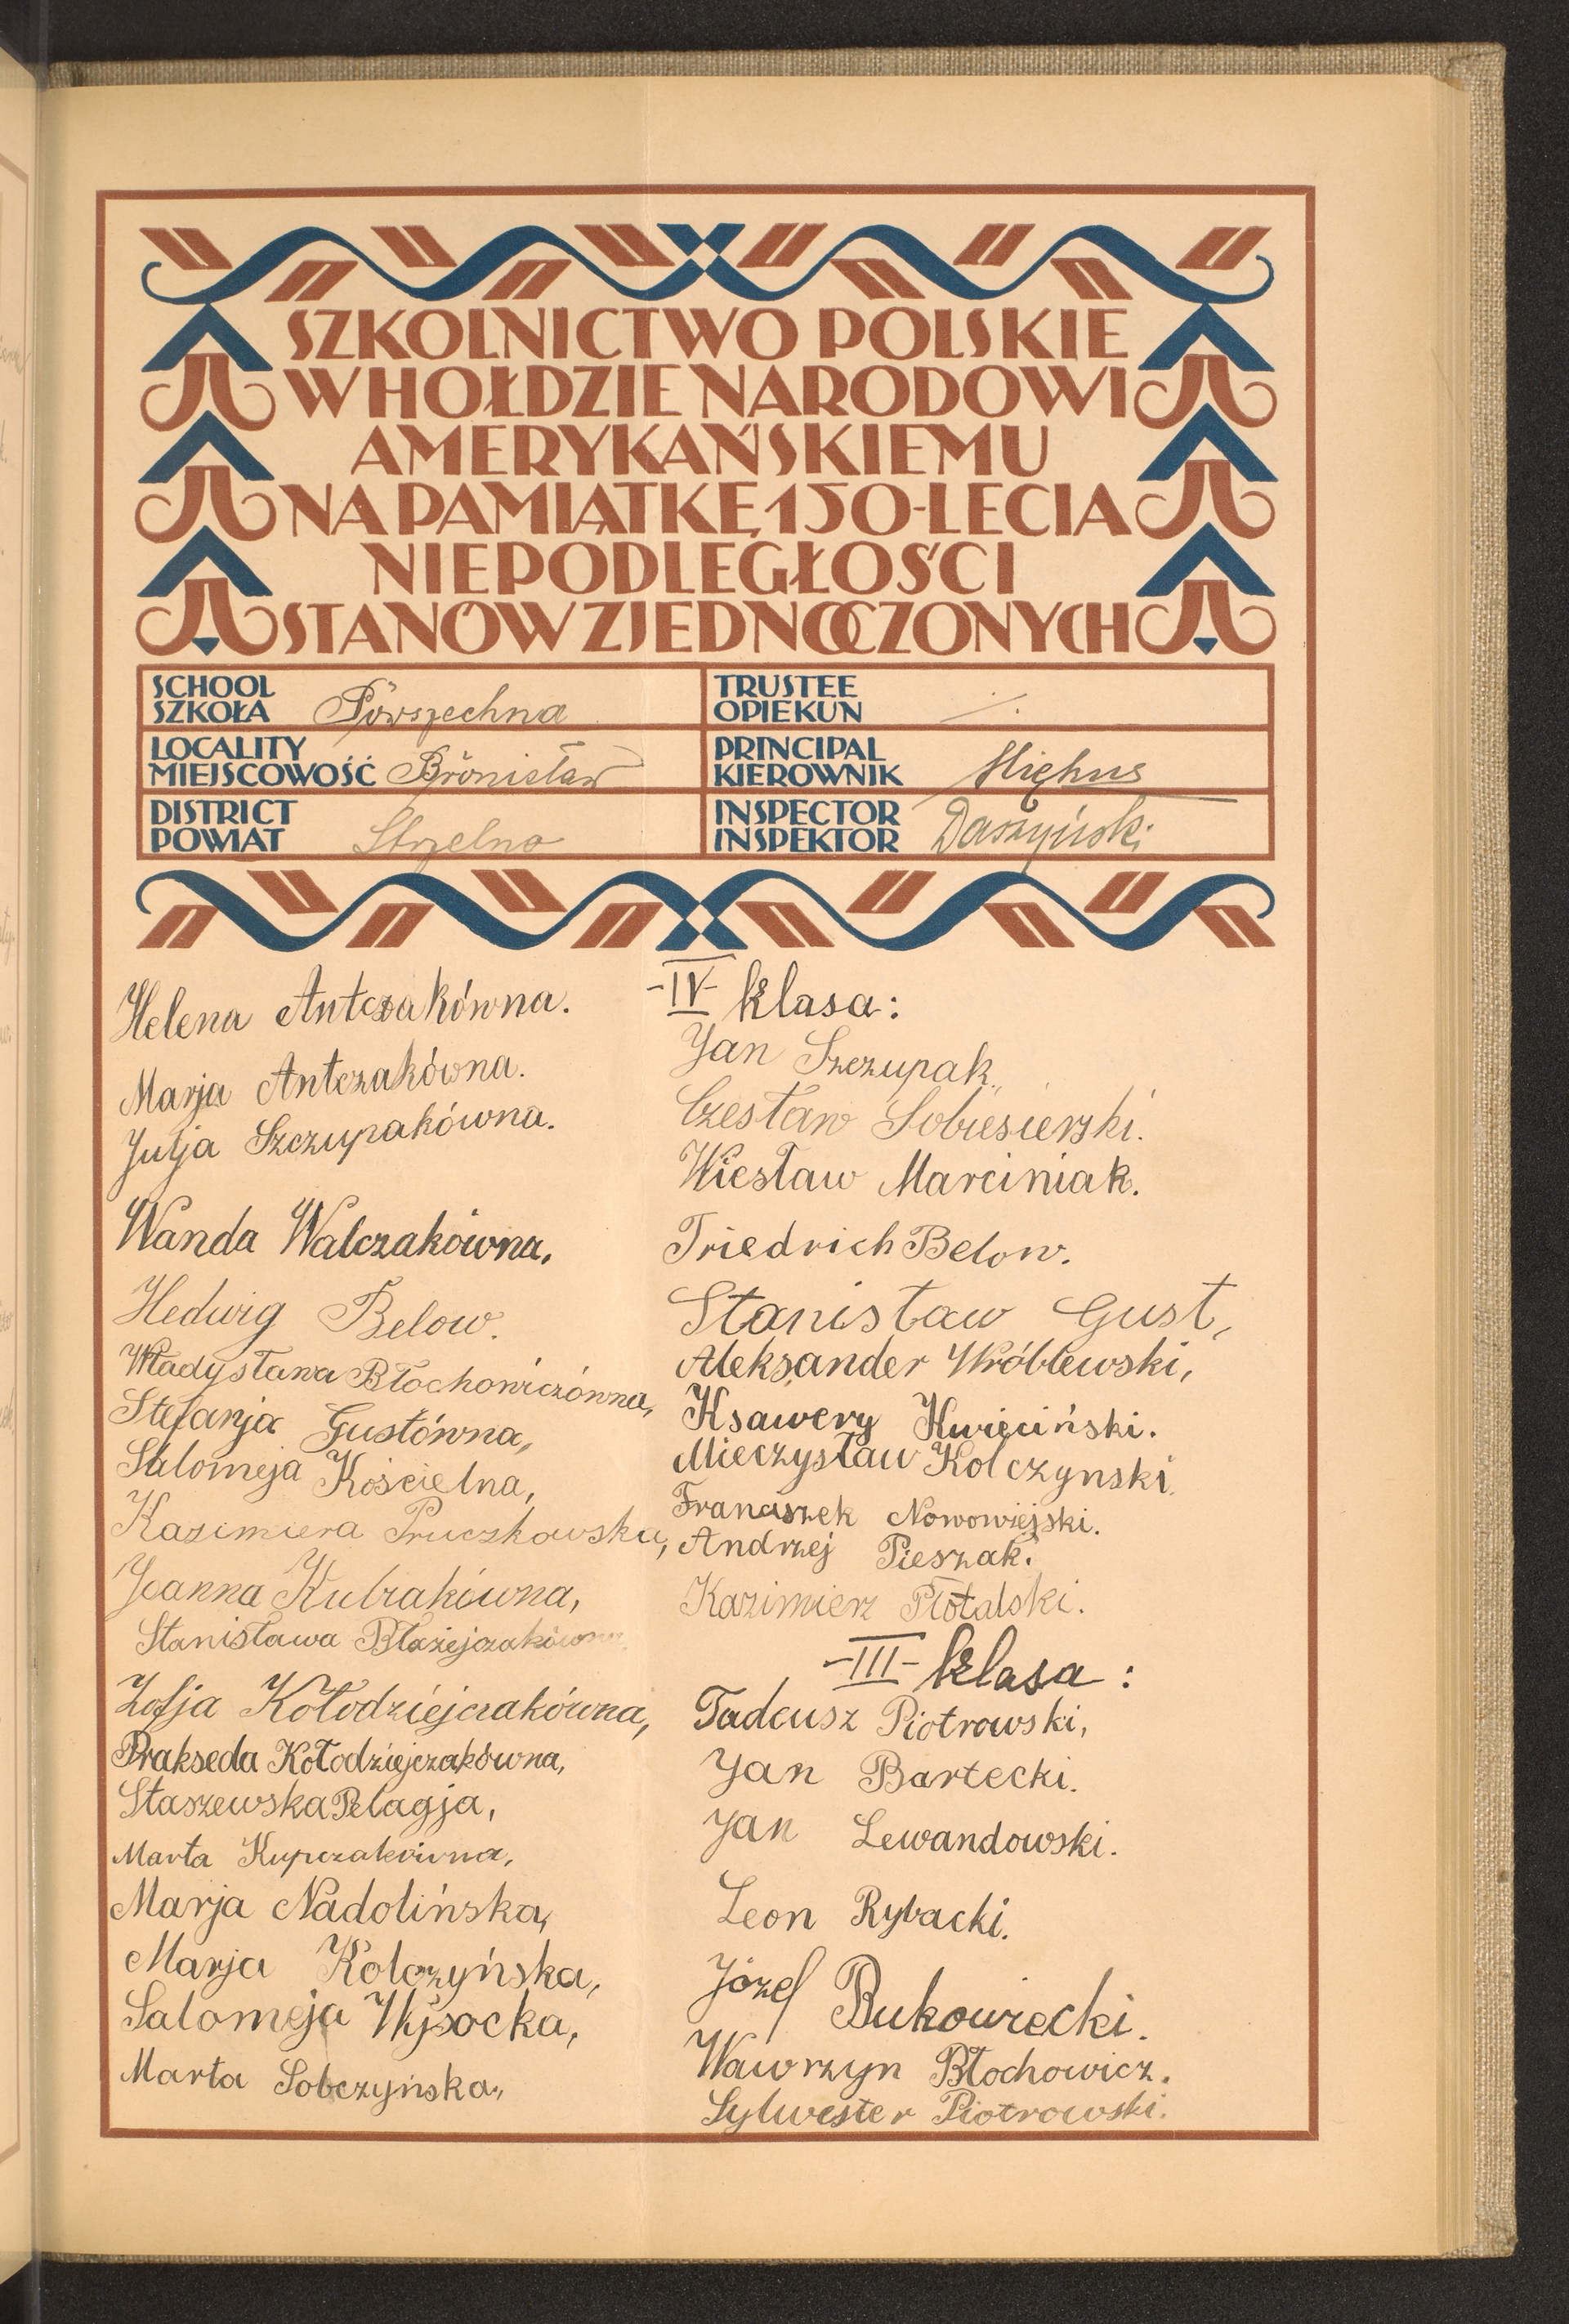 SZKOLNICTWO POLSKIE
W HOŁDZIE NARODOWI
AMERYKAŃSKIEMU
NA PAMIĄTKĘ 150-LECIA
NIEPODLEGŁOŚCI
STANÓW ZJEDNOCZONYCH
SCHOOL
SZKOŁA Powszechna
LOCALITY
MIEJSCOWOŚĆ Bronisław
DISTRICT
POWIAT Strzelno
TRUSTEE
OPIEKUN
PRINCIPAL
KIEROWNIK
INSPECTOR
INSPEKTOR Daszyński
Helena Antczakówna.
Marja Antczakówna.
Julja Szczupakówna.
Wanda Walczakówna.
Hedwig Below.
Władysława Błochowiczówna,
Stefanja Gustówna,
Salomeja Kościelna,
Kazimiera Pruczkowska,
Joanna Kubiakówna,
Stanisława Błażejczakówna
Zofja Kołodziejczakówna,
Prakseda Kołodziejczakówna,
Staszewska Pelagja,
Marta Kupczakówna,
Marja Nadolińska,
Marja Kolczyńska,
Salomeja Wysocka,
Marta Sobczyńska,
-IV- klasa:
Jan Szczupak.
Czesław Sobiesierski.
Wiesław Marciniak.
Friedrich Below.
Stanisław Gust,
Aleksander Wróblewski,
Ksawery Kwieciński.
Mieczysław Kolczynski.
Franciszek Nowowiejski.
Andrzej Pieszak.
Kazimierz
-III- klasa:
Tadeusz Piotrowski,
Jan Bartecki.
Jan Lewandowski.
Leon Rybacki.
Józef Bukowiecki.
Wawrzyn Błochowicz.
Sylwester Piotrowski.